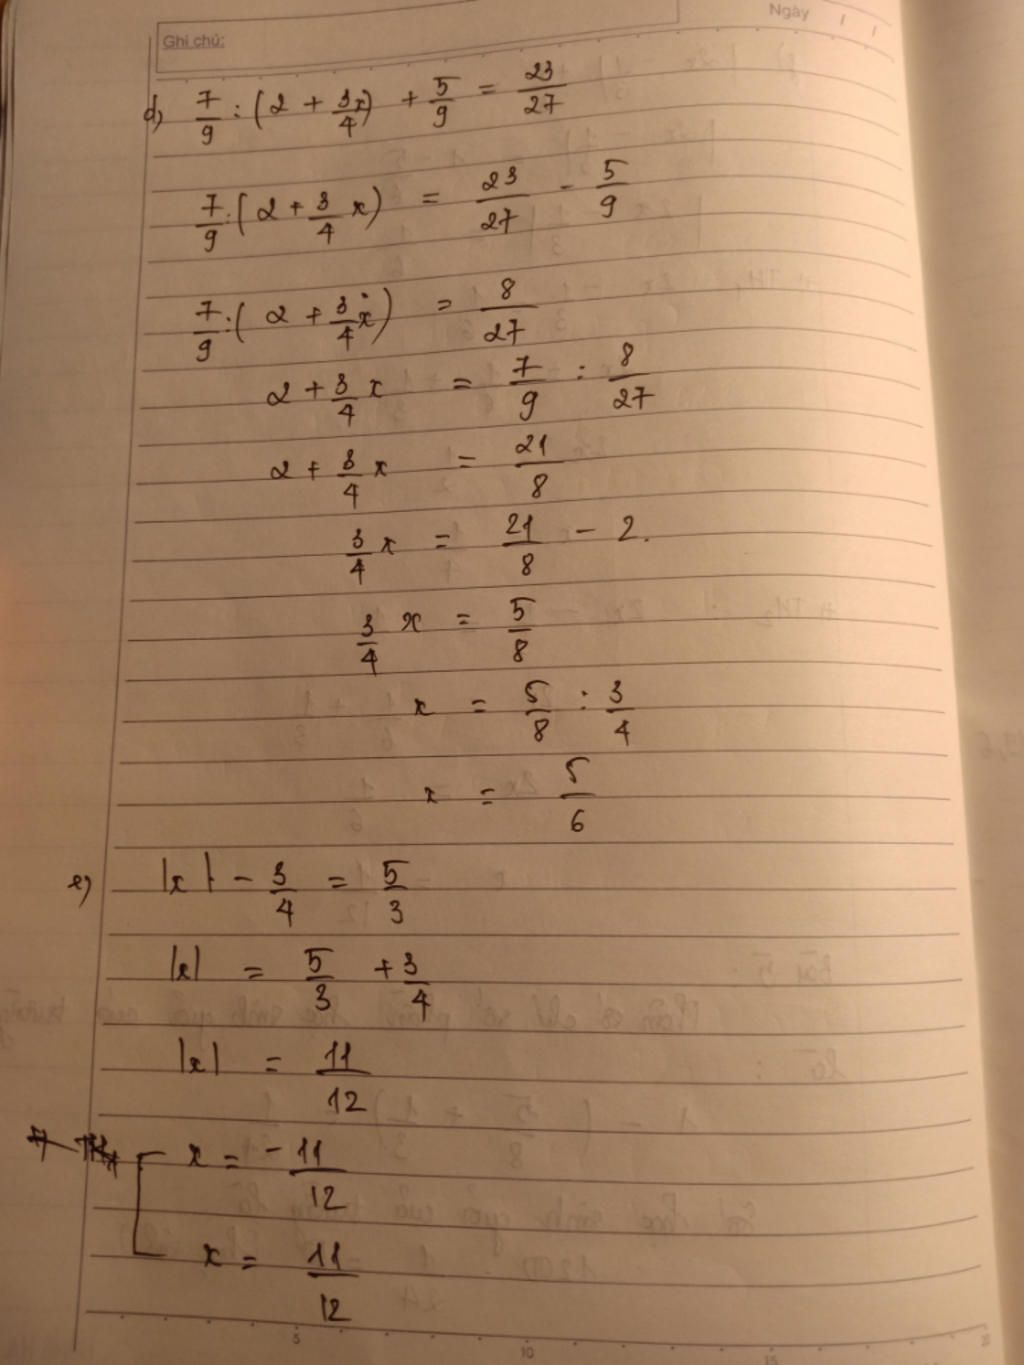 Ngày / /
Ghi chú:
d) 7/9 : (2 + 3x/4) + 5/9 = 23/27
7/9 : (2 + 3/4 x) = 23/27 - 5/9
7/9 : (2 + 3/4 x) = 8/27
2 + 3/4 x = 7/9 : 8/27
2 + 3/4 x = 21/8
3/4 x = 21/8 - 2.
3/4 x = 5/8
x = 5/8 : 3/4
x = 5/6
e) |x| - 3/4 = 5/3
|x| = 5/3 + 3/4
|x| = 11/12
[ x = -11/12
x = 11/12
5 10 15